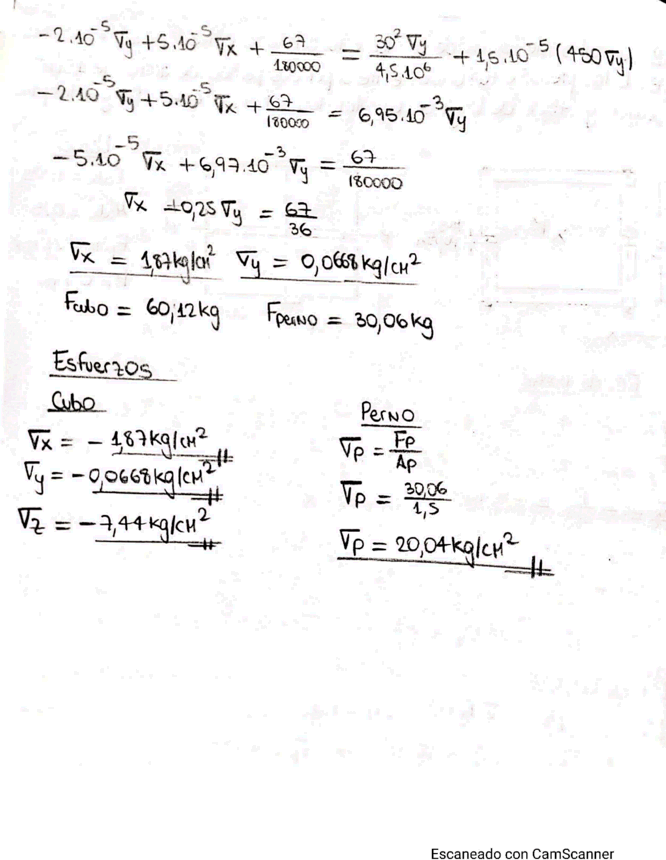 -2.10^-5 σy + 5.10^-5 σx + 67/180000 = 30² σy/4,5.10^6 + 1,5.10^-5 (450 σy)
-2.10^-5 σy + 5.10^-5 σx + 67/180000 = 6,95.10^-3 σy
-5.10^-5 σx + 6,97.10^-3 σy = 67/180000
σx + 0,25 σy = 67/36
σx = 1,87 kg/cm² σy = 0,0668 kg/cm²
Fcubo = 60,12 kg Fperno = 30,06 kg
Esfuerzos
Cubo
σx = - 1,87 kg/cm²
σy = -0,0668 kg/cm²
σz = -7,44 kg/cm²
Perno
σp = Fp/Ap
σp = 30,06/1,5
σp = 20,04 kg/cm²
Escaneado con CamScanner